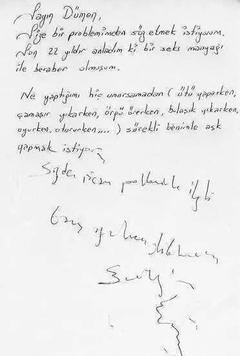 Sayın Dümen,
Size bir problemimden söz etmek istiyorum.
Son 22 yıldır anladım ki bir seks manyağı
ile beraber olmuşum.
Ne yaptığımı hiç umursamadan ( ütü yaparken,
çamaşır yıkarken, örgü örerken, bulaşık yıkarken,
uyurken, otururken... ) sürekli benimle aşk
yapmak istiyor
Sizden ricam